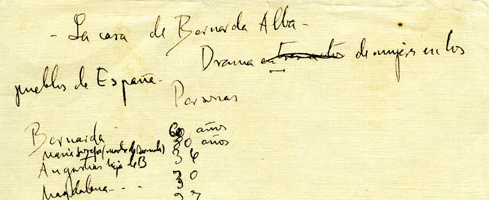 - La casa de Bernarda Alba -
Drama en tres actos de mujeres en los
pueblos de España.
Personas
Bernarda 60 años
Maria Josefa (madre de Bernarda) 80 años
Angustias hija de B
Magdalena - - 30
27